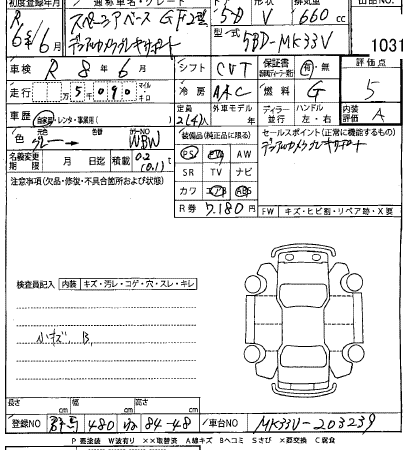 初度登録年月 通称車名・グレード ドア 形状 排気量 出品NO
R 6年6月 スペーシアベース GF 2型 デュアルカメラブレーキサポート 5D V 660 cc
型式 5BD-MK33V 1031
車検 R 8年 6月 シフト CVT 有・無 評価点
走行 万 5千 090 マイル キロ 冷房 AAC 燃料 G 5
定員 2(4)人 外車モデル 年 ディーラー 並行 ハンドル 左・右 内装評価 A
車歴 自家用・レンタ・事業用( )
色 元色 グレー → 色替 カラーNO WBW
装備品(純正品に限る) セールスポイント(正常に機能するもの)
PS PW AW デュアルカメラブレーキサポート
名義変更期限 月 日迄 積載 0.2 (0.1)t SR TV ナビ
注意事項(欠品・修復・不具合箇所および状態) カワ エアB ABS
R券 7,180円 FW キズ・ヒビ割・リペア跡・X要
検査員記入 内装 キズ・汚レ・コゲ・穴・スレ・キレ
小キズ B
長さ cm 幅 cm 高さ cm
登録NO 群馬 480 ね 84-48 車台NO MK33V-203239
P要塗装 W波有り ××取替済 A線キズ Bヘコミ Sさび ×要交換 C腐食